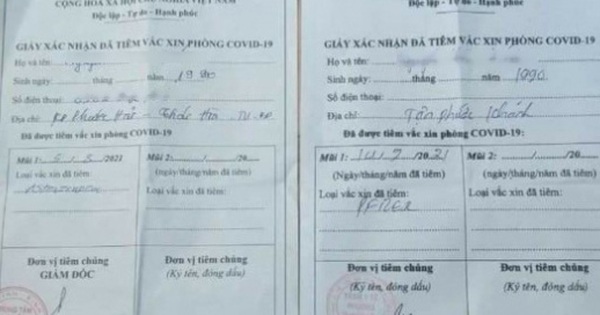 CỘNG HÒA XÃ HỘI CHỦ NGHĨA VIỆT NAM
Độc lập - Tự do - Hạnh phúc
GIẤY XÁC NHẬN ĐÃ TIÊM VẮC XIN PHÒNG COVID-19
Họ và tên:
Sinh ngày: tháng năm 19
Số điện thoại:
Địa chỉ:
Đã được tiêm vắc xin phòng COVID-19
Mũi 1: 5/8/2021
(ngày/tháng/năm đã tiêm)
Loại vắc xin đã tiêm
Mũi 2: / /20
(ngày/tháng/năm đã tiêm)
Loại vắc xin đã tiêm:
Đơn vị tiêm chủng
GIÁM ĐỐC
Đơn vị tiêm chủng
(Ký tên, đóng dấu)
Độc lập - Tự do - Hạnh phúc
GIẤY XÁC NHẬN ĐÃ TIÊM VẮC XIN PHÒNG COVID-19
Họ và tên:
Sinh ngày: tháng năm 1990
Số điện thoại:
Địa chỉ: Tân Phước Khánh
Đã được tiêm vắc xin phòng COVID-19:
Mũi 1: 2021
(Ngày/tháng/năm đã tiêm)
Loại vắc xin đã tiêm:
PFIZER
Mũi 2: / /20
(ngày/tháng/năm đã tiêm)
Loại vắc xin đã tiêm:
Đơn vị tiêm chủng
(Ký tên, đóng dấu)
Đơn vị tiêm chủng
(Ký tên, đóng dấu)